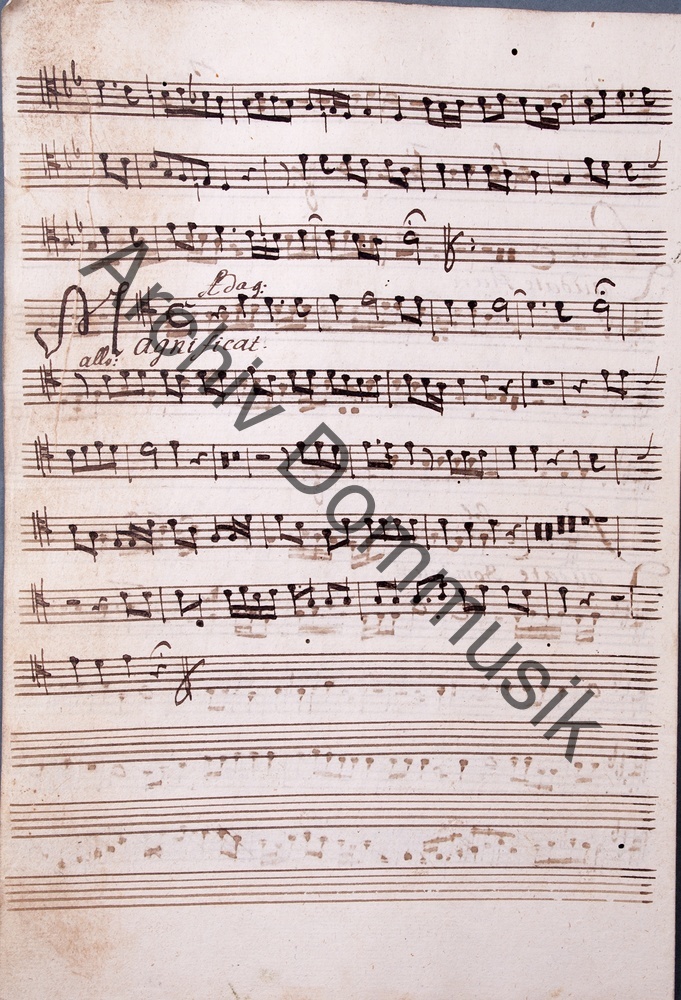 Adag:
Magnificat.
allo:
Archiv Dommusik